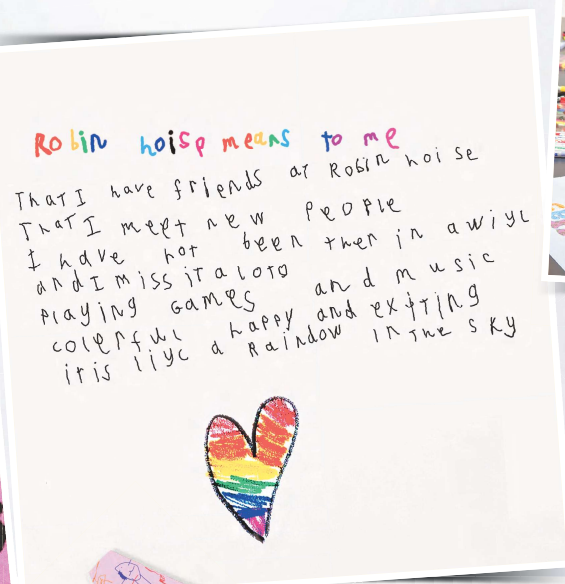 Robin hoise means to me
That I have friends at Robin hoise
That I meet new People
I have not been ther in awiyl
and I miss it a loto
Playing Games and music
colerful happy and exfting
it is liyc a Raindow in the sky